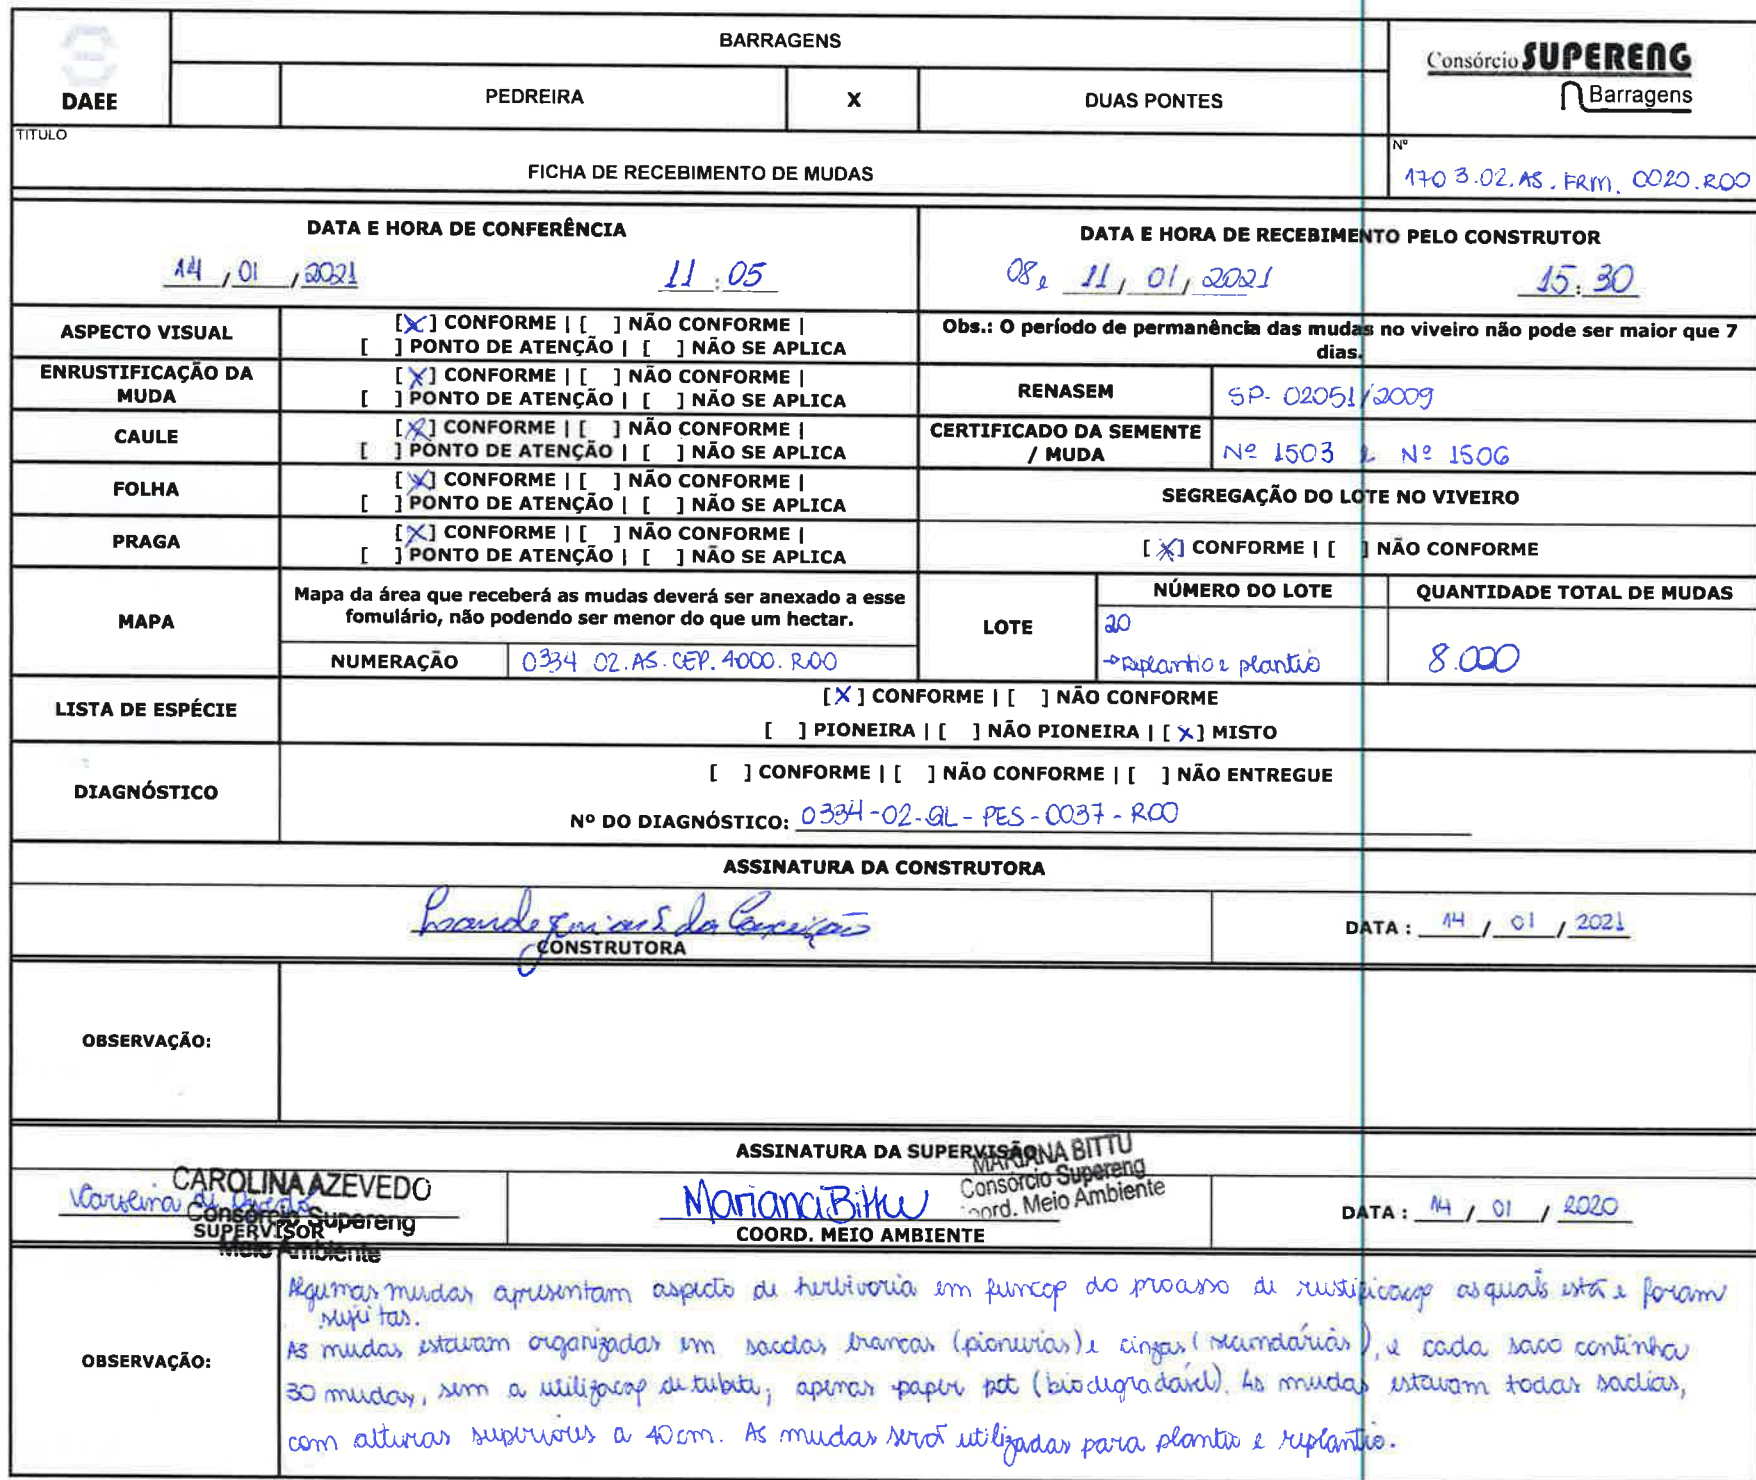 BARRAGENS
Consórcio SUPERENG
Barragens
DAEE
PEDREIRA
X
DUAS PONTES
TITULO
FICHA DE RECEBIMENTO DE MUDAS
Nº
1703.02.AS.FRM.0020.R00
DATA E HORA DE CONFERÊNCIA
14 / 01 / 2021 11:05
DATA E HORA DE RECEBIMENTO PELO CONSTRUTOR
08 e 11 / 01 / 2021 15:30
ASPECTO VISUAL
[X] CONFORME | [ ] NÃO CONFORME |
[ ] PONTO DE ATENÇÃO | [ ] NÃO SE APLICA
Obs.: O período de permanência das mudas no viveiro não pode ser maior que 7
dias.
ENRUSTIFICAÇÃO DA
MUDA
[X] CONFORME | [ ] NÃO CONFORME |
[ ] PONTO DE ATENÇÃO | [ ] NÃO SE APLICA
RENASEM
SP- 02051/2009
CAULE
[X] CONFORME | [ ] NÃO CONFORME |
[ ] PONTO DE ATENÇÃO | [ ] NÃO SE APLICA
CERTIFICADO DA SEMENTE
/ MUDA
Nº 1503 e Nº 1506
FOLHA
[X] CONFORME | [ ] NÃO CONFORME |
[ ] PONTO DE ATENÇÃO | [ ] NÃO SE APLICA
SEGREGAÇÃO DO LOTE NO VIVEIRO
PRAGA
[X] CONFORME | [ ] NÃO CONFORME |
[ ] PONTO DE ATENÇÃO | [ ] NÃO SE APLICA
[X] CONFORME | [ ] NÃO CONFORME
MAPA
Mapa da área que receberá as mudas deverá ser anexado a esse
fomulário, não podendo ser menor do que um hectar.
NUMERAÇÃO
0334 02.AS.CEP.4000.R00
LOTE
NÚMERO DO LOTE
20
→ replantio e plantio
QUANTIDADE TOTAL DE MUDAS
8.000
LISTA DE ESPÉCIE
[X] CONFORME | [ ] NÃO CONFORME
[ ] PIONEIRA | [ ] NÃO PIONEIRA | [X] MISTO
DIAGNÓSTICO
[ ] CONFORME | [ ] NÃO CONFORME | [ ] NÃO ENTREGUE
Nº DO DIAGNÓSTICO: 0334-02-GL-PES-0037-R00
ASSINATURA DA CONSTRUTORA
da Conceição
CONSTRUTORA
DATA : 14 / 01 / 2021
OBSERVAÇÃO:
ASSINATURA DA SUPERVISÃO
Carolina de Azevedo
CAROLINA AZEVEDO
Consórcio Supereng
Meio Ambiente
SUPERVISOR
Mariana Bittu
MARIANA BITTU
Consórcio Supereng
Coord. Meio Ambiente
COORD. MEIO AMBIENTE
DATA : 14 / 01 / 2020
OBSERVAÇÃO:
Algumas mudas apresentam aspecto de herbivoria em função do processo de rustificação as quais está e foram
sujeitas.
As mudas estavam organizadas em sacolas brancas (pioneiras) e cinzas (secundárias), e cada saco continha
30 mudas, sem a utilização de tubete, apenas paper pot (biodegradável). As mudas estavam todas sadias,
com alturas superiores a 40cm. As mudas será utilizadas para plantio e replantio.